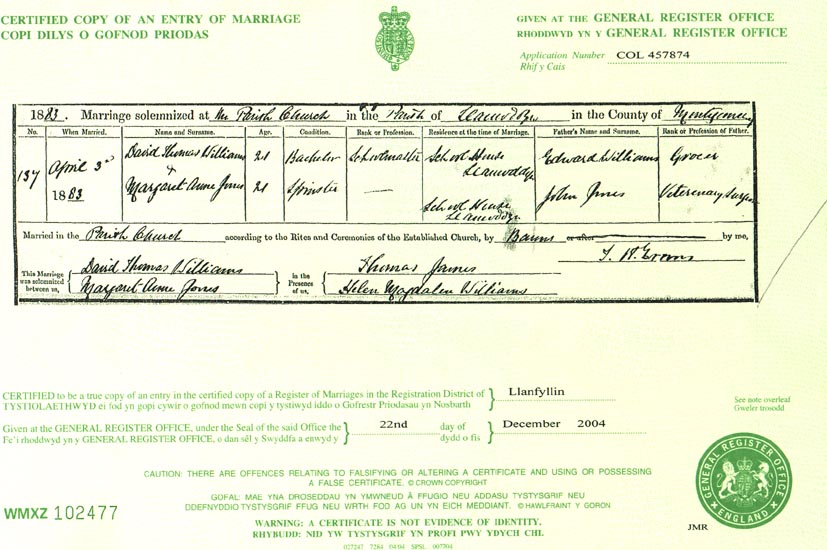 CERTIFIED COPY OF AN ENTRY OF MARRIAGE
COPI DILYS O GOFNOD PRIODAS
GIVEN AT THE GENERAL REGISTER OFFICE
RHODDWYD YN Y GENERAL REGISTER OFFICE
Application Number COL 457874
Rhif y Cais
1883. Marriage solemnized at the Parish Church in the Parish of in the County of Montgomery
No. When Married. Name and Surname. Age. Condition. Rank or Profession. Residence at the time of Marriage. Father's Name and Surname. Rank or Profession of Father.
137 April 3rd 1883
David Thomas Williams 21 Bachelor Schoolmaster School House Edward Williams Grocer
&
Margaret Anne Jones 21 Spinster — School House John Jones Veterenary Surgeon
Married in the Parish Church according to the Rites and Ceremonies of the Established Church, by Banns or after by me,
This Marriage was solemnized between us,
David Thomas Williams
Margaret Anne Jones
in the Presence of us,
Thomas James
Helen Magdalen Williams
CERTIFIED to be a true copy of an entry in the certified copy of a Register of Marriages in the Registration District of
TYSTIOLAETHWYD ei fod yn gopi cywir o gofnod mewn copi y tystiwyd iddo o Gofrestr Priodasau yn Nosbarth
Llanfyllin
Given at the GENERAL REGISTER OFFICE, under the Seal of the said Office the
Fe'i rhoddwyd yn y GENERAL REGISTER OFFICE, o dan sêl y Swyddfa a enwyd y
22nd day of December 2004
dydd o fis
See note overleaf
Gweler trosodd
CAUTION: THERE ARE OFFENCES RELATING TO FALSIFYING OR ALTERING A CERTIFICATE AND USING OR POSSESSING
A FALSE CERTIFICATE. © CROWN COPYRIGHT
GOFAL: MAE YNA DROSEDDAU YN YMWNEUD Â FFUGIO NEU ADDASU TYSTYSGRIF NEU
DDEFNYDDIO TYSTYSGRIF FFUG NEU WRTH FOD AG UN YN EICH MEDDIANT. © HAWLFRAINT Y GORON
WARNING: A CERTIFICATE IS NOT EVIDENCE OF IDENTITY.
RHYBUDD: NID YW TYSTYSGRIF YN PROFI PWY YDYCH CHI.
WMXZ 102477
GENERAL REGISTER OFFICE
ENGLAND
JMR